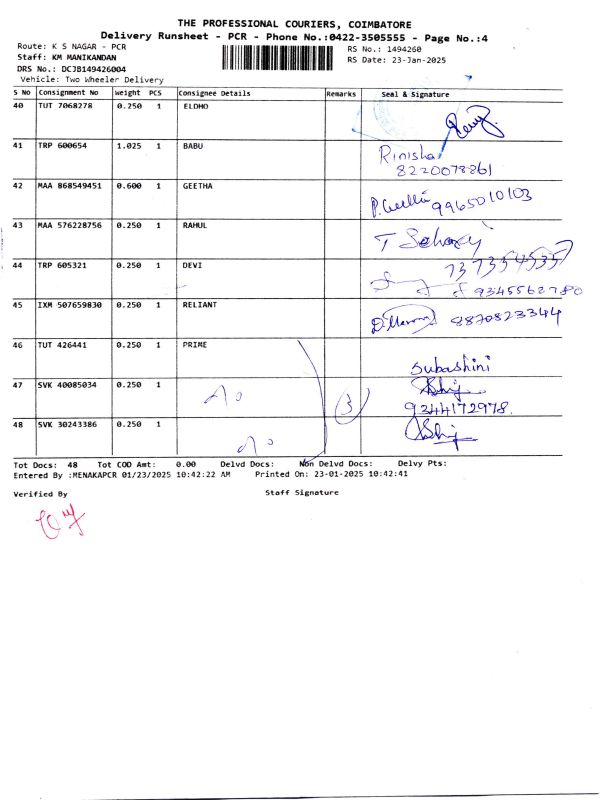 THE PROFESSIONAL COURIERS, COIMBATORE
Delivery Runsheet - PCR - Phone No.:0422-3505555 - Page No.:4
Route: K S NAGAR - PCR
RS No.: 1494260
Staff: KM MANIKANDAN
RS Date: 23-Jan-2025
DRS No.: DCJB149426004
Vehicle: Two Wheeler Delivery
S No Consignment No Weight PCS Consignee Details Remarks Seal & Signature
40 TUT 7068278 0.250 1 ELDHO
41 TRP 600654 1.025 1 BABU Rinisha
8220078861
42 MAA 868549451 0.600 1 GEETHA P. Geetha 9965010103
43 MAA 576228756 0.250 1 RAHUL T
44 TRP 605321 0.250 1 DEVI 7373545357
9345562780
45 IXM 507659830 0.250 1 RELIANT 8870823344
46 TUT 426441 0.250 1 PRIME
Subashini
47 SVK 40085034 0.250 1
3 9344172978.
48 SVK 30243386 0.250 1
Tot Docs: 48 Tot COD Amt: 0.00 Delvd Docs: Non Delvd Docs: Delvy Pts:
Entered By :MENAKAPCR 01/23/2025 10:42:22 AM Printed On: 23-01-2025 10:42:41
Verified By Staff Signature